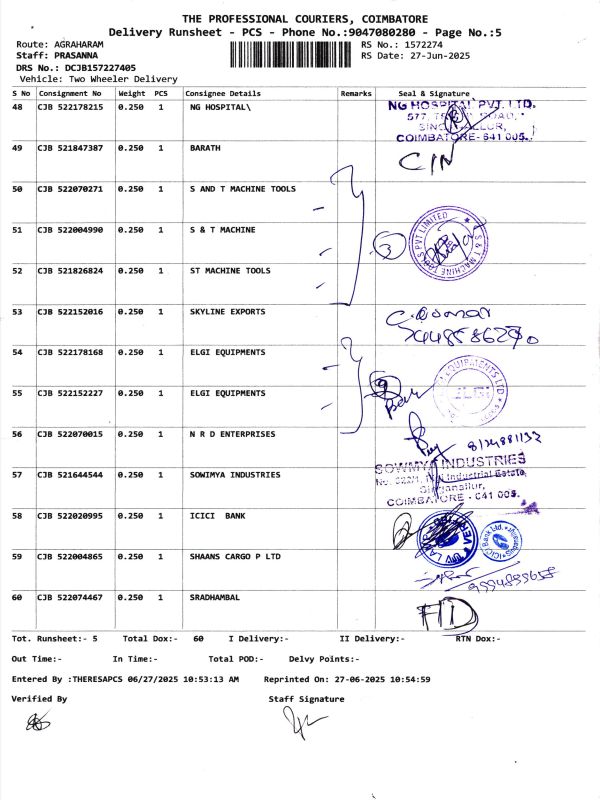 THE PROFESSIONAL COURIERS, COIMBATORE
Delivery Runsheet - PCS - Phone No.:9047080280 - Page No.:5
Route: AGRAHARAM RS No.: 1572274
Staff: PRASANNA RS Date: 27-Jun-2025
DRS No.: DCJB157227405
Vehicle: Two Wheeler Delivery
S No Consignment No Weight PCS Consignee Details Remarks Seal & Signature
48 CJB 522178215 0.250 1 NG HOSPITAL\
NG HOSPITAL PVT. LTD.
COIMBATORE-641 005.
49 CJB 521847387 0.250 1 BARATH
50 CJB 522070271 0.250 1 S AND T MACHINE TOOLS
51 CJB 522004990 0.250 1 S & T MACHINE
3
S & T MACHINE TOOLS PVT LIMITED
52 CJB 521826824 0.250 1 ST MACHINE TOOLS
53 CJB 522152016 0.250 1 SKYLINE EXPORTS
54 CJB 522178168 0.250 1 ELGI EQUIPMENTS
55 CJB 522152227 0.250 1 ELGI EQUIPMENTS
56 CJB 522070015 0.250 1 N R D ENTERPRISES
57 CJB 521644544 0.250 1 SOWIMYA INDUSTRIES
SOWMYA INDUSTRIES
Industrial Estate,
COIMBATORE - 641 005.
58 CJB 522020995 0.250 1 ICICI BANK
ICICI Bank Ltd.
59 CJB 522004865 0.250 1 SHAANS CARGO P LTD
60 CJB 522074467 0.250 1 SRADHAMBAL
Tot. Runsheet:- 5 Total Dox:- 60 I Delivery:- II Delivery:- RTN Dox:-
Out Time:- In Time:- Total POD:- Delvy Points:-
Entered By :THERESAPCS 06/27/2025 10:53:13 AM Reprinted On: 27-06-2025 10:54:59
Verified By Staff Signature